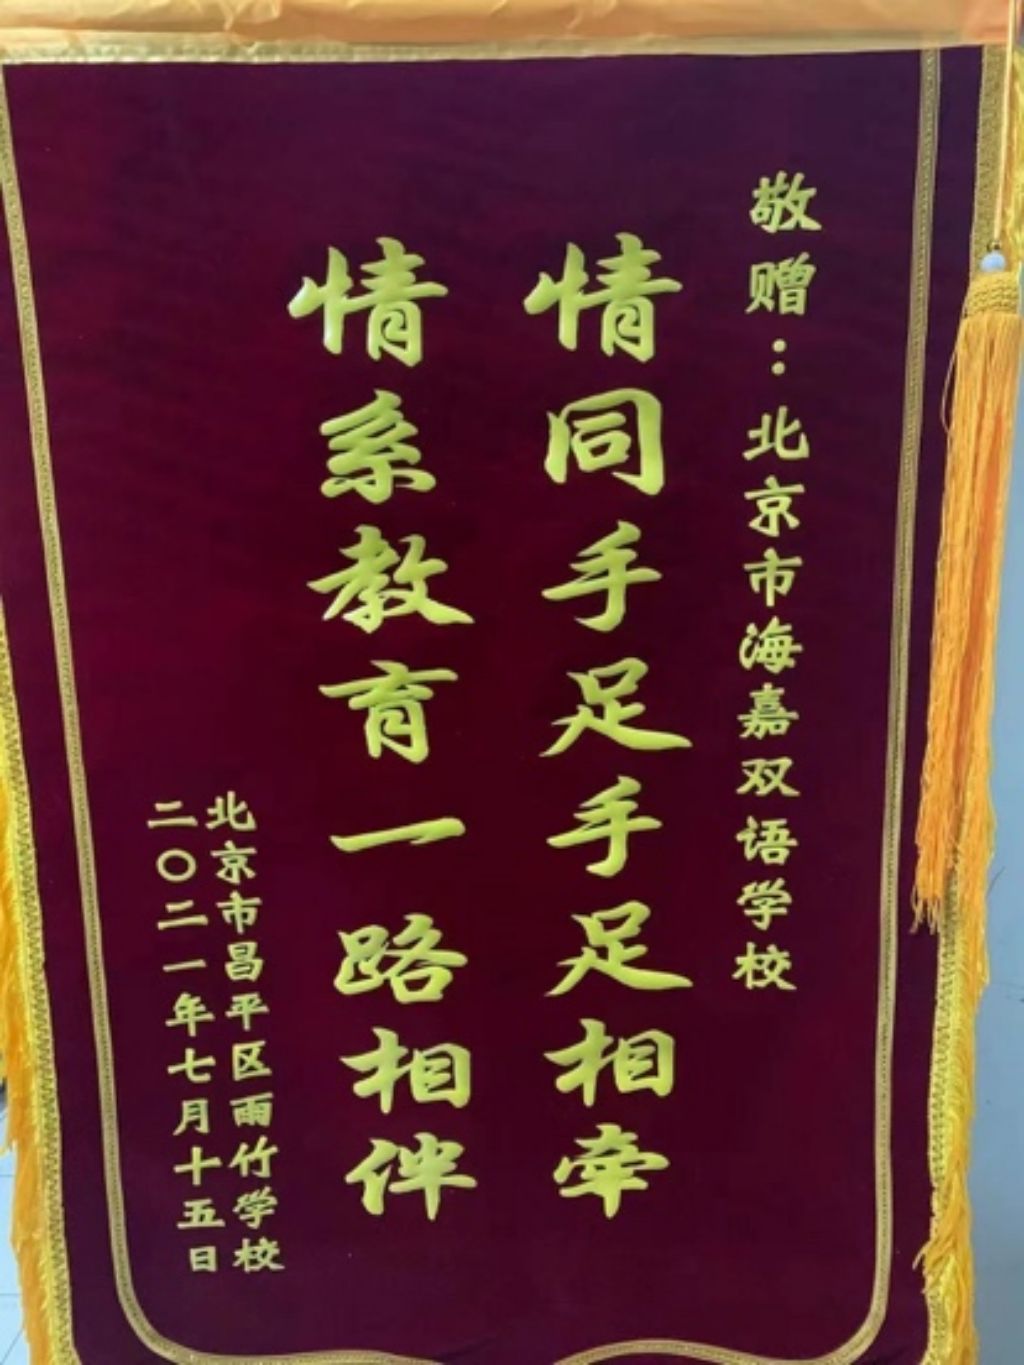 敬赠：北京市海嘉双语学校
情同手足手足相牵
情系教育一路相伴
北京市昌平区雨竹学校
二〇二一年七月十五日